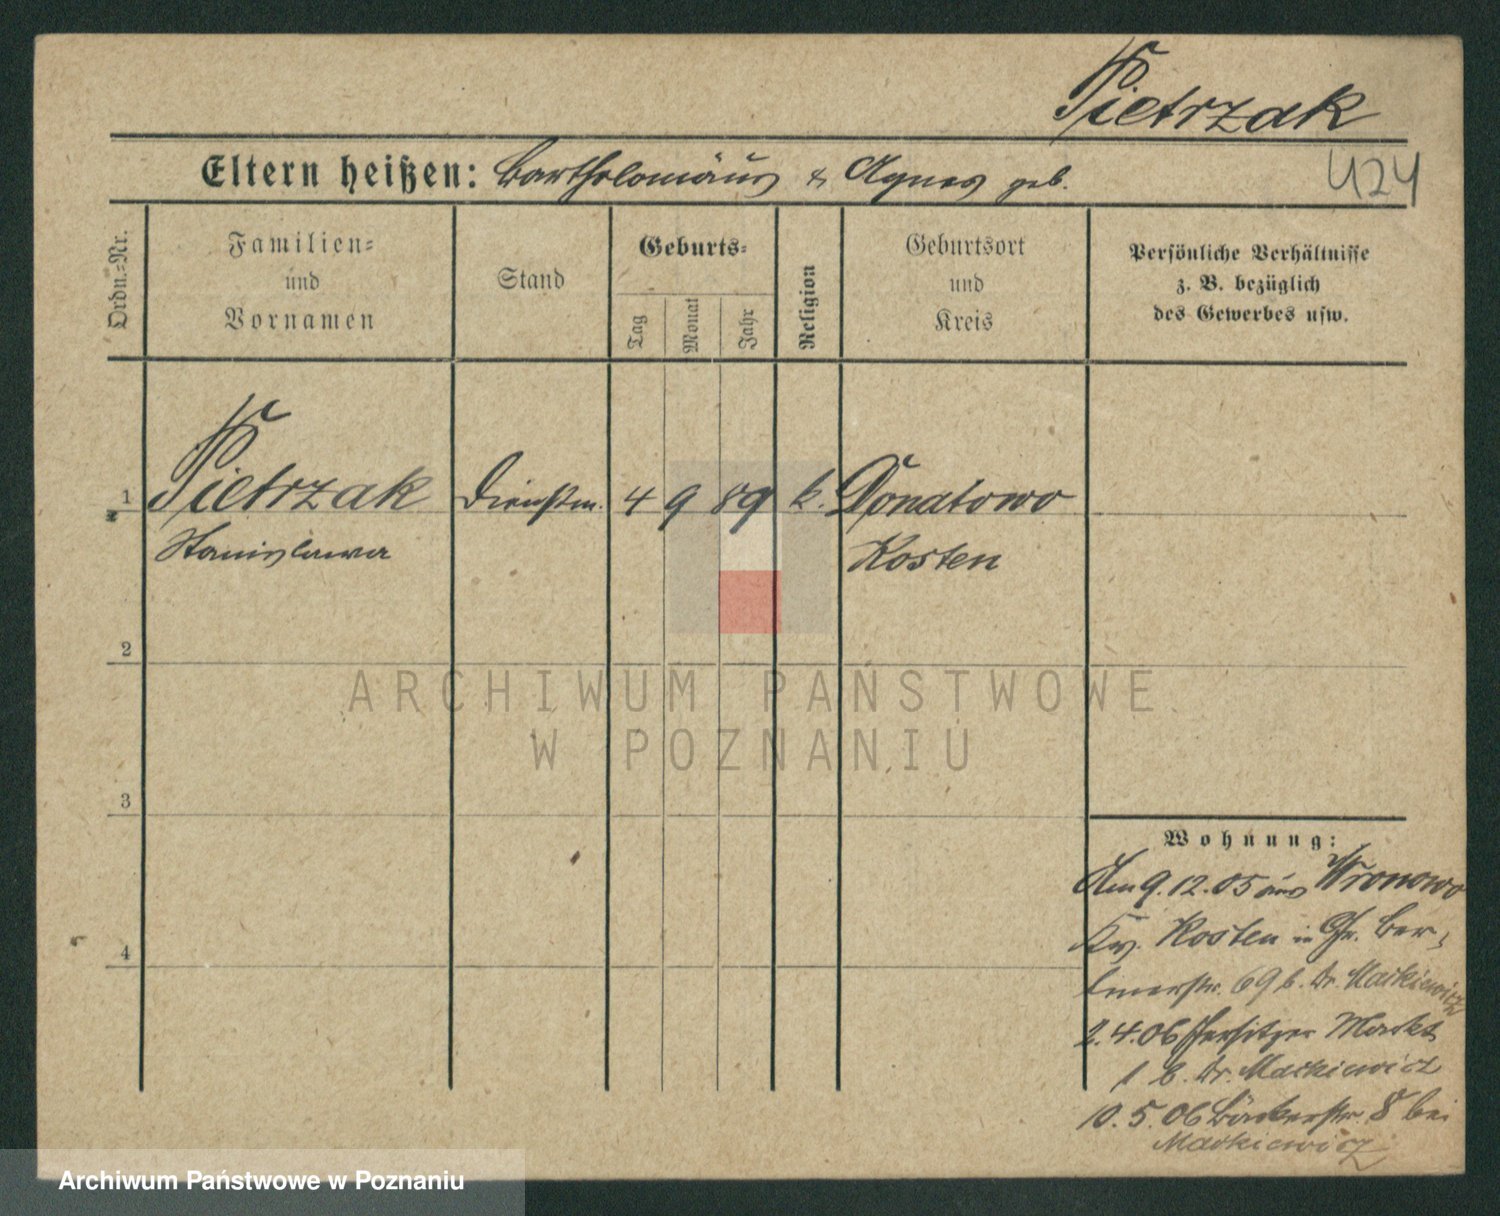 Pietrzak
Eltern heißen: Bartholomäus & Agnes geb.
424
Ordn.=Nr.
Familien=
und
Vornamen
Stand
Geburts=
Tag
Monat
Jahr
Religion
Geburtsort
und
Kreis
Persönliche Verhältnisse
z. B. bezüglich
des Gewerbes usw.
1 Pietrzak Dienstm. 4 9 89 k. Donatowo
Stanislawa Kosten
2
ARCHIWUM PAŃSTWOWE
W POZNANIU
3
Wohnung:
Am 9.12.05 aus Wronowo
Kr. Kosten in Gr. Ber-
linerstr. 69 b. Dr. Mackiewicz
4
2.4.06 Jersitzer Markt
1 b. Dr. Mackiewicz
10.5.06 Bäckerstr. 8 bei
Mackiewicz
Archiwum Państwowe w Poznaniu